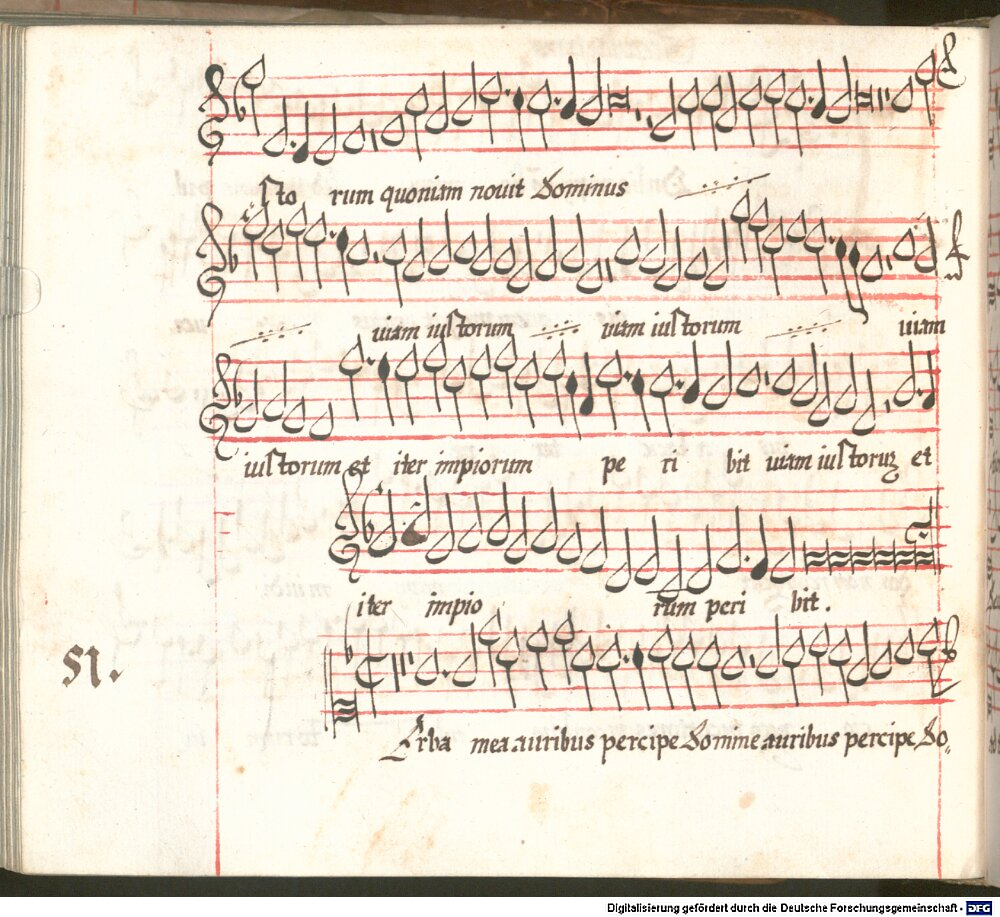 sto rum quoniam novit Dominus
viam iustorum viam iustorum viam
iustorum et iter impiorum pe ri bit viam iustoruȝ et
iter impio rum peri bit.
51.
Erba mea auribus percipe Domine auribus percipe Do„
Digitalisierung gefördert durch die Deutsche Forschungsgemeinschaft - DFG